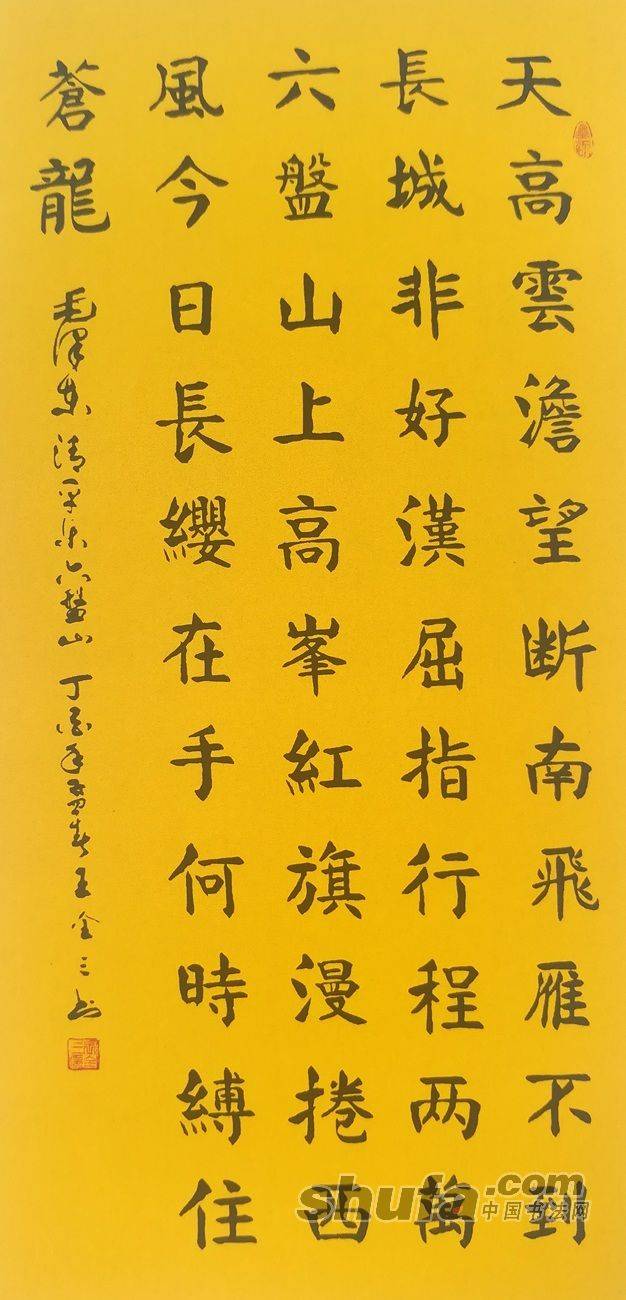 天高雲澹望断南飛雁不到
長城非好漢屈指行程两萬
六盤山上高峯紅旗漫捲西
風今日長纓在手何時縛住
蒼龍
毛澤东清平乐六盤山 丁酉年孟春王全三书
shufa.com
中国书法网